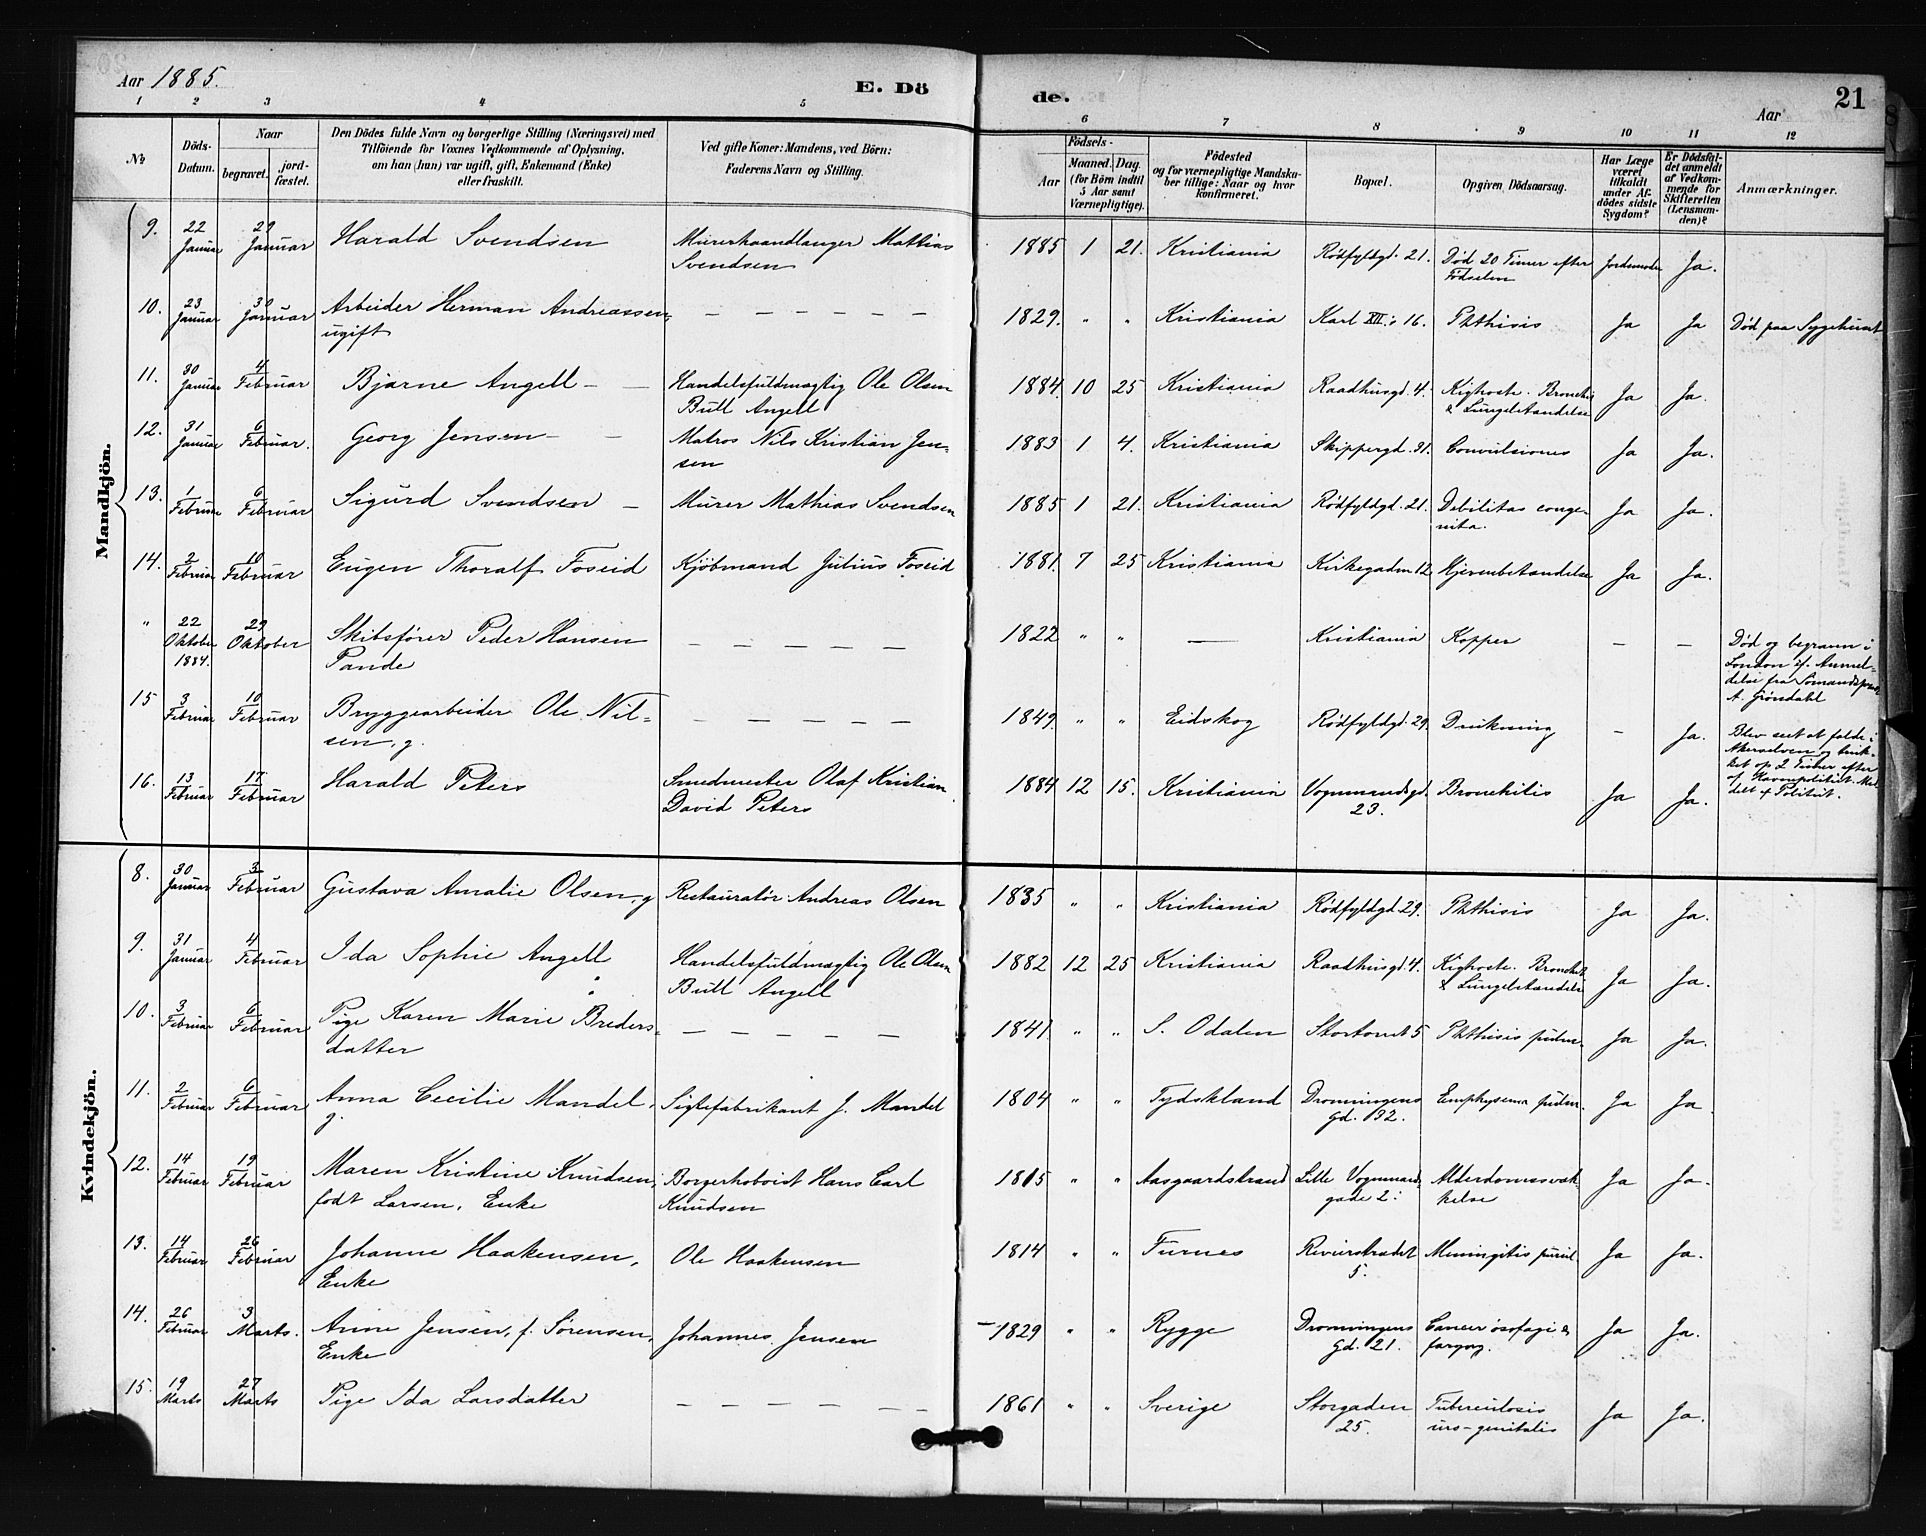 Aar 1885.
E. Dö
de.
Aar
21
1 2 3 4 5 6 7 8 9 10 11 12
No
Döds-
Datum.
Naar
begravet.
jord-
fæstet.
Den Dödes fulde Navn og borgerlige Stilling (Næringsvei) med
Tilföiende for Voxnes Vedkommende af Oplysning,
om han (hun) var ugift, gift, Enkemand (Enke)
eller fraskilt.
Ved gifte Koner: Mandens, ved Börn:
Faderens Navn og Stilling.
Födsels-
Aar
Maaned.
Dag.
(for Börn indtil
5 Aar samt
Værnepligtige).
Födested
og for værnepligtige Mandska-
ber tillige: Naar og hvor
konfirmeret.
Bopæl.
Opgiven Dödsaarsag.
Har Læge
været
tilkaldt
under Af-
dödes sidste
Sygdom?
Er Dödsfal-
det anmeldt
af Vedkom-
mende for
Skifteretten
(Lensman-
den)?
Anmærkninger.
Mandkjön.
9. 22 Januar 29 Januar Harald Svendsen Murerhaandlanger Mathias 1885 1 21. Kristiania Rødfyldgd. 21. Død 20 Timer efter Jordemoder Ja.
Svendsen Fødselen
10. 23 Januar 30 Januar Arbeider Herman Andreassen, — — — — — 1829. " " Kristiania Karl XII.s 16. Phthisis Ja Ja Død paa Sygehuset
ugift
11. 30 Januar 4 Februar Bjarne Angell — Handelsfuldmægtig Ole Olsen 1884 10 25 Kristiania Raadhusgd. 4. Kighoste. Bronchit Ja Ja.
Bull Angell & Lungebetændelse
12. 31 Januar 6 Februar. Georg Jensen — Matros Nils Kristian Jen- 1883 1 4. Kristiania Skippergd. 31. Convulsiones Ja Ja.
sen
13. 1 Februar 6 Februar Sigurd Svendsen — Murer Mathias Svendsen 1885 1 21. Kristiania Rødfyldgd. 21. Debilitas conge- Ja Ja.
nita.
14. 2 Februar 10 Februar Eugen Thoralf Foseid Kjöbmand Julius Foseid 1881. 7 25 Kristiania Kirkegaden 12 Hjernebetændelse Ja Ja.
" 22 Oktober 1884. 29 Oktober Skibsfører Peder Hansen — — — — — 1822 " " — Kristiania Kopper — — Død og begraven i
Pande London if. Anmel-
delse fra Sømandsprest
A. Grøndahl
15 3 Februar 10 Februar Bryggearbeider Ole Nil- — — — — — 1849. " " Eidskog Rødfyldgd. 29. Drukning — Ja. Blev seet at falde i
sen, g. Akerselven og truk-
ket op 2 Timer efter
af Havnepolitiet. Mel-
delt af Politiet.
16. 13 Februar 17 Februar Harald Peters Smedmester Olaf Kristian 1884 12 15. Kristiania Vognmandsgd. Bronchitis Ja Ja.
David Peters 23.
Kvindekjön.
8. 30 Januar 3 Februar Gustava Amalie Olsen, g Restauratör Andreas Olsen 1835 " " Kristiania Rødfyldgd. 29. Phthisis Ja Ja.
9. 31 Januar 4 Februar Ida Sophie Angell Handelsfuldmægtig Ole Olsen 1882 12 25 Kristiania Raadhusgd. 4. Kighoste. Bronchit Ja Ja.
Bull Angell & Lungebetændelse
10. 3 Februar 6 Februar Pige Karen Marie Breders- — — — — — 1841. " " S. Odalen Stortorvet 5 Phthisis pulm. Ja Ja.
datter
11. 2 Februar 6 Februar Anna Cecilie Mandel, Siglefabrikant J. Mandel 1804 " " Tydskland Dronningens Emphysema pulm. Ja Ja
g. gd. 32.
12. 14 Februar 19 Februar Maren Kristine Knudsen, Borgerhoboist Hans Carl 1815 " " Aasgaardstrand Lille Vognmands- Alderdomssvæk- Ja Ja.
født Larsen, Enke Knudsen gade 2. kelse
13. 14 Februar 26 Februar Johanne Haakensen, Ole Haakensen 1814 " " Furnes Revierstrædet Meningitis purul. Ja Ja.
Enke 5.
14. 26 Februar 3 Marts. Anne Jensen, f. Sørensen, Johannes Jensen 1829 " " Rygge Dronningens Cancer øsofagi & Ja Ja.
Enke Gd. 21.
15. 19 Marts 27 Marts Pige Ida Larsdatter — — — — — 1861 " " Sverige Storgaden Tuberculosis Ja Ja.
25. uro-genitalis